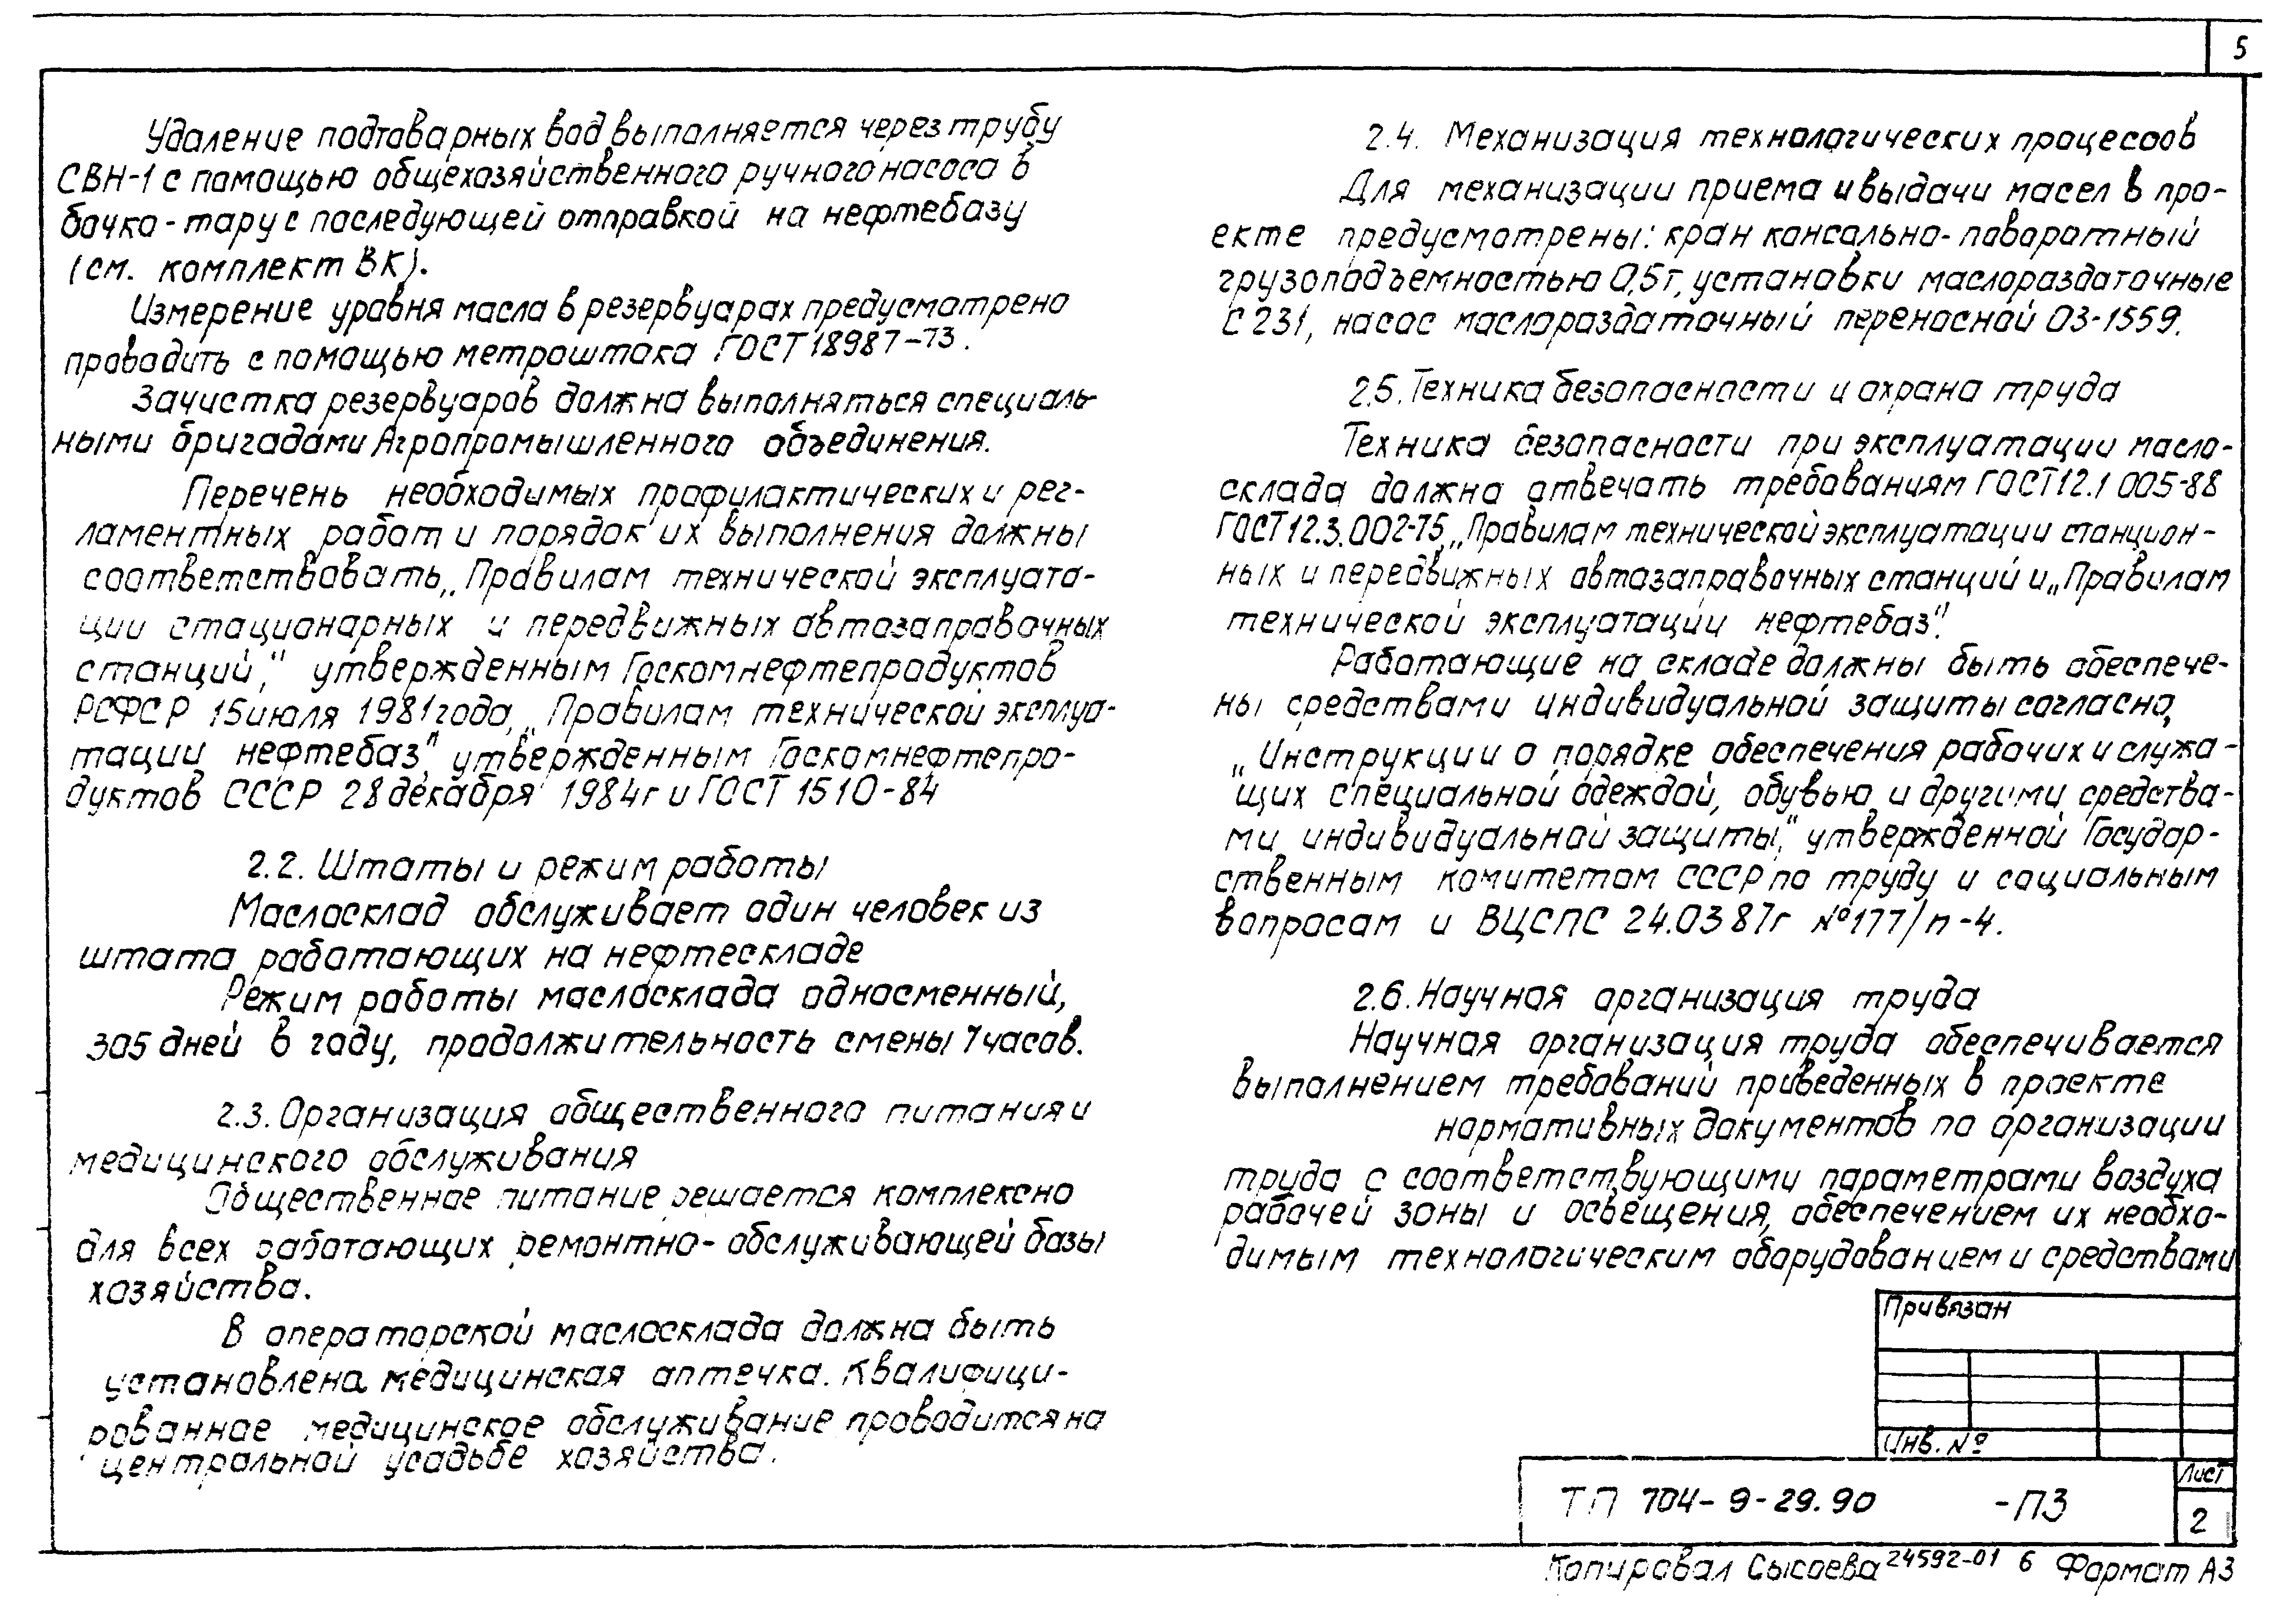 5
Удаление подтоварных вод выполняется через трубу
СВН-1 с помощью общехозяйственного ручного насоса в
бочко-тару с последующей отправкой на нефтебазу
(см. комплект ВК).
Измерение уровня масла в резервуарах предусмотрено
проводить с помощью метроштока ГОСТ 18987-73.
Зачистка резервуаров должна выполняться специаль-
ными бригадами Агропромышленного объединения.
Перечень необходимых профилактических и рег-
ламентных работ и порядок их выполнения должны
соответствовать „Правилам технической эксплуата-
ции стационарных и передвижных автозаправочных
станций," утвержденным Госкомнефтепродуктов
РСФСР 15 июля 1981 года, „Правилам технической эксплуа-
тации нефтебаз", утвержденным Госкомнефтепро-
дуктов СССР 28 декабря 1984г и ГОСТ 1510-84
2.2. Штаты и режим работы
Маслосклад обслуживает один человек из
штата работающих на нефтескладе
Режим работы маслосклада односменный,
305 дней в году, продолжительность смены 7 часов.
2.3. Организация общественного питания и
медицинского обслуживания
Общественное питание решается комплексно
для всех работающих ремонтно-обслуживающей базы
хозяйства.
В операторской маслосклада должна быть
установлена медицинская аптечка. Квалифици-
рованное медицинское обслуживание проводится на
центральной усадьбе хозяйства.
2.4. Механизация технологических процессов
Для механизации приема и выдачи масел в про-
екте предусмотрены: кран консольно-поворотный
грузоподъемностью 0,5т, установки маслораздаточные
С 231, насос маслораздаточный переносной 03-1559.
2.5. Техника безопасности и охрана труда
Техника безопасности при эксплуатации масло-
склада должна отвечать требованиям ГОСТ 12.1 005-88
ГОСТ 12.3.002-75, „Правилам технической эксплуатации станцион-
ных и передвижных автозаправочных станций и „Правилам
технической эксплуатации нефтебаз".
Работающие на складе должны быть обеспече-
ны средствами индивидуальной защиты согласно,
„Инструкции о порядке обеспечения рабочих и служа-
щих специальной одеждой, обувью и другими средства-
ми индивидуальной защиты," утвержденной Государ-
ственным комитетом СССР по труду и социальным
вопросам и ВЦСПС 24.03 87г №177/п-4.
2.6. Научная организация труда
Научная организация труда обеспечивается
выполнением требований приведенных в проекте
нормативных документов по организации
труда с соответствующими параметрами воздуха
рабочей зоны и освещения, обеспечением их необхо-
димым технологическим оборудованием и средствами
Привязан
Инв. №
ТП 704-9-29.90 -ПЗ
Лист
2
Копировал Сысоева 24592-01 6 Формат А3